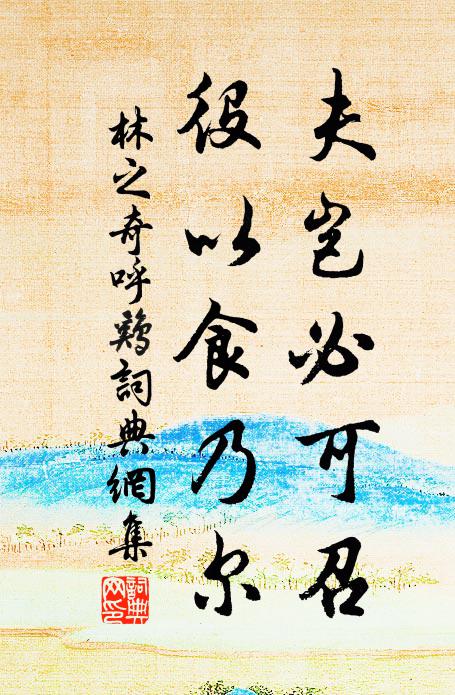 夫岂必可召
役以食乃尔
林之奇呼鷄詞典網集
詞典
网印